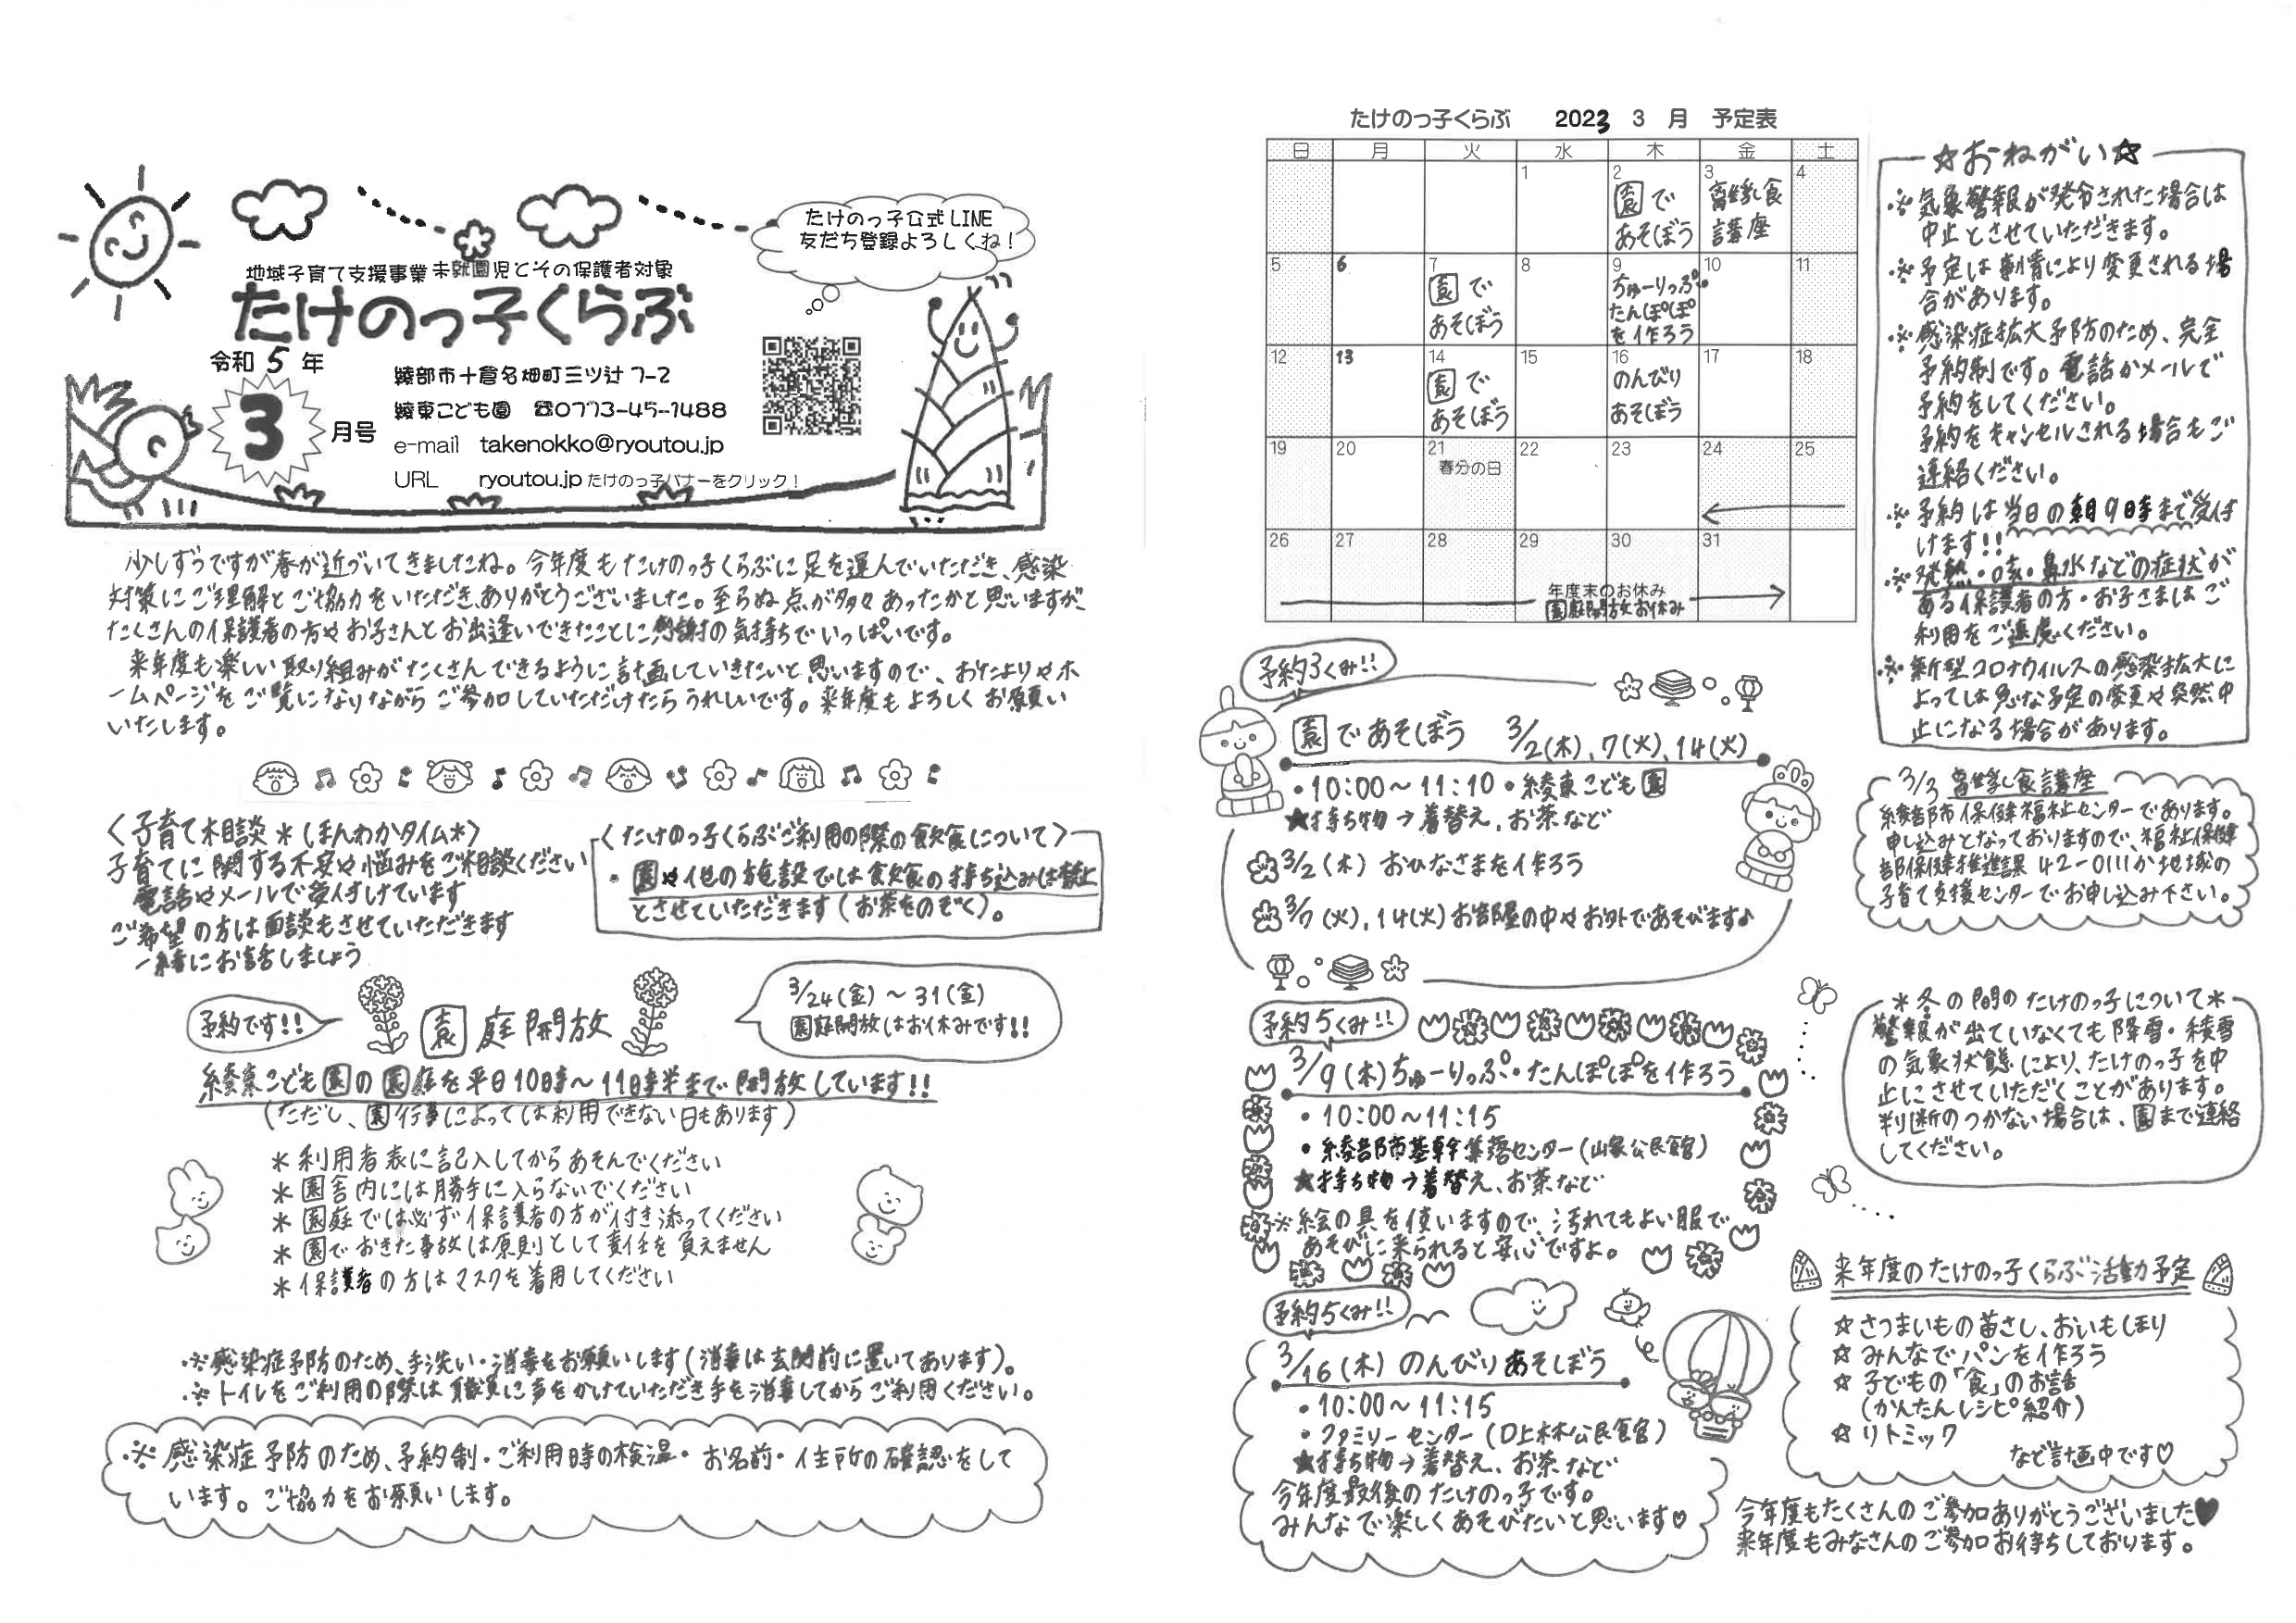 たけのっ子公式LINE
友だち登録よろしくね！
地域子育て支援事業 未就園児とその保護者対象
たけのっ子くらぶ
令和 5 年
3 月号
綾部市十倉名畑町三ツ辻 7-2
綾東こども園 ☎0773-45-1488
e-mail takenokko@ryoutou.jp
URL ryoutou.jp たけのっ子バナーをクリック！
少しずつですが春が近づいてきましたね。今年度もたけのっ子くらぶに足を運んでいただき、感染
対策にご理解とご協力をいただき、ありがとうございました。至らぬ点が多々あったかと思いますが、
たくさんの保護者の方やお子さんとお出逢いできたことに感謝の気持ちでいっぱいです。
来年度も楽しい取り組みがたくさんできるように計画していきたいと思いますので、おたよりやホ
ームページをご覧になりながらご参加していただけたらうれしいです。来年度もよろしくお願い
いたします。
〈子育て相談＊ほんわかタイム＊〉
子育てに関する不安や悩みをご相談ください
電話やメールで受付けています
ご希望の方は面談もさせていただきます
一緒にお話しましょう
〈たけのっ子くらぶご利用の際の飲食について〉
・園や他の施設では飲食の持ち込みは禁止
とさせていただきます（お茶をのぞく）。
予約です!!
園庭開放
3/24(金)～31(金)
園庭開放はお休みです!!
綾東こども園の園庭を平日10時～11時半まで開放しています!!
（ただし、園行事によっては利用できない日もあります）
＊利用者表に記入してからあそんでください
＊園舎内には勝手に入らないでください
＊園庭では必ず保護者の方が付き添ってください
＊園でおきた事故は原則として責任を負えません
＊保護者の方はマスクを着用してください
※感染症予防のため、手洗い・消毒をお願いします（消毒は玄関前に置いてあります）。
※トイレをご利用の際は職員に声をかけていただき手を消毒してからご利用ください。
※感染症予防のため、予約制・ご利用時の検温・お名前・住所の確認をして
います。ご協力をお願いします。
たけのっ子くらぶ 2023 3 月 予定表
日 月 火 水 木 金 土
1 2 3 4
園で
あそぼう
離乳食
講座
5 6 7 8 9 10 11
園で
あそぼう
ちゅーりっぷ・
たんぽぽ
を作ろう
12 13 14 15 16 17 18
園で
あそぼう
のんびり
あそぼう
19 20 21 22 23 24 25
春分の日
26 27 28 29 30 31
年度末のお休み
園庭開放お休み
☆おねがい☆
※気象警報が発令された場合は
中止とさせていただきます。
※予定は事情により変更される場
合があります。
※感染症拡大予防のため、完全
予約制です。電話かメールで
予約をしてください。
予約をキャンセルされる場合もご
連絡ください。
※予約は当日の朝9時まで受付
けます!!
※発熱・咳・鼻水などの症状が
ある保護者の方・お子さまはご
利用をご遠慮ください。
※新型コロナウイルスの感染拡大に
よっては急な予定の変更や突然中
止になる場合があります。
予約3くみ!!
園であそぼう 3/2(木),7(火),14(火)
・10:00～11:10 ・綾東こども園
★持ち物→着替え、お茶など
3/2(木) おひなさまを作ろう
3/7(火),14(火)お部屋の中やお外であそびます♪
3/3 離乳食講座
綾部市保健福祉センターであります。
申し込みとなっておりますので、福祉保健
部保健推進課 42-0111か地域の
子育て支援センターでお申し込み下さい。
予約5くみ!!
3/9(木)ちゅーりっぷ・たんぽぽを作ろう
・10:00～11:15
・綾部市基幹集落センター（山家公民館）
★持ち物→着替え、お茶など
※絵の具を使いますので、汚れてもよい服で
あそびに来られると安心ですよ。
＊冬の間のたけのっ子について＊
警報が出ていなくても降雪・積雪
の気象状態により、たけのっ子を中
止にさせていただくことがあります。
判断のつかない場合は、園まで連絡
してください。
予約5くみ!!
3/16(木) のんびりあそぼう
・10:00～11:15
・ファミリーセンター（口上林公民館）
★持ち物→着替え、お茶など
今年度最後のたけのっ子です。
みんなで楽しくあそびたいと思います♡
来年度のたけのっ子くらぶ活動予定
☆さつまいもの苗さし、おいもほり
☆みんなでパンを作ろう
☆子どもの「食」のお話
（かんたんレシピ紹介）
☆リトミック
など計画中です♡
今年度もたくさんのご参加ありがとうございました♥
来年度もみなさんのご参加お待ちしております。